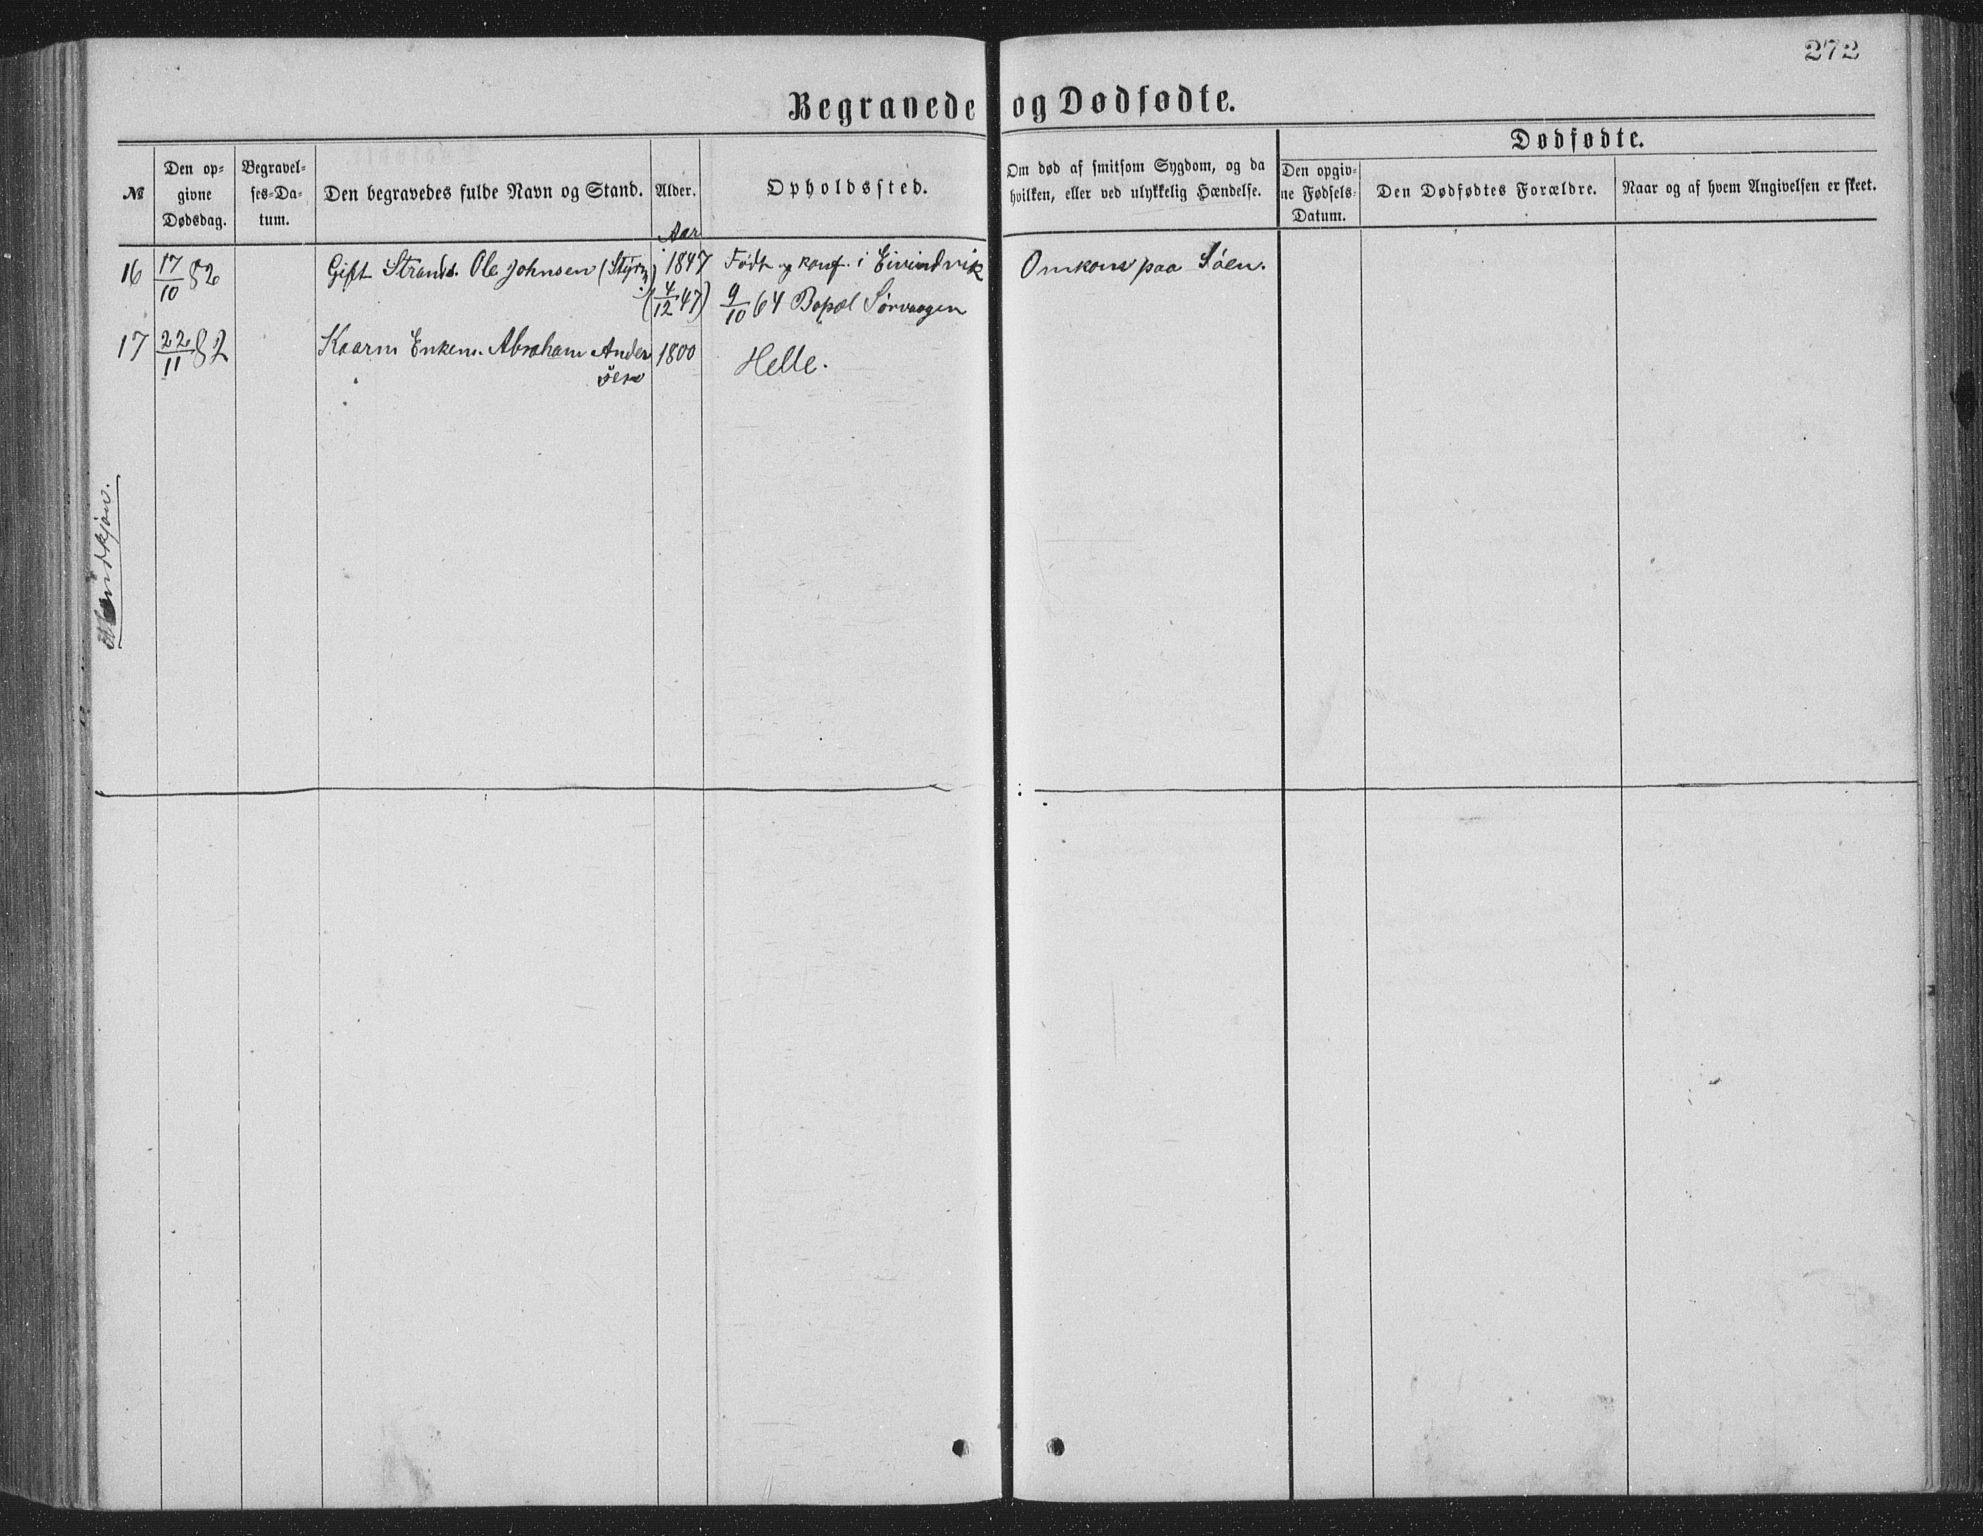 272
Begravede og Dødfødte.
Dødfødte.
№
Den op-
givne
Dødsdag.
Begravel-
ses-Da-
tum.
Den begravedes fulde Navn og Stand.
Alder.
Opholdssted.
Om død af smitsom Sygdom, og da
hvilken, eller ved ulykkelig Hændelse.
Den opgiv-
ne Fødsels-
Datum.
Den Dødfødtes Forældre.
Naar og af hvem Angivelsen er skeet.
Aar
16 17/10 82 Gift Strands. Ole Johnsen 1847 Født og konf. i Eivindvik Omkom paa Søen.
(4/12 47) 9/10 64 Bopæl Sørvaagen
17 22/11 82 Enkem. Abraham Ander 1800 Helle.
sen
Mandkjøn.